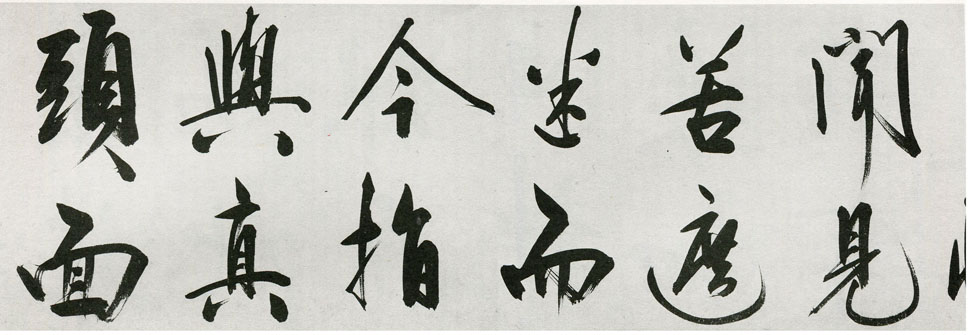 聞見
苦遮
迷而
今指
與真
頭面